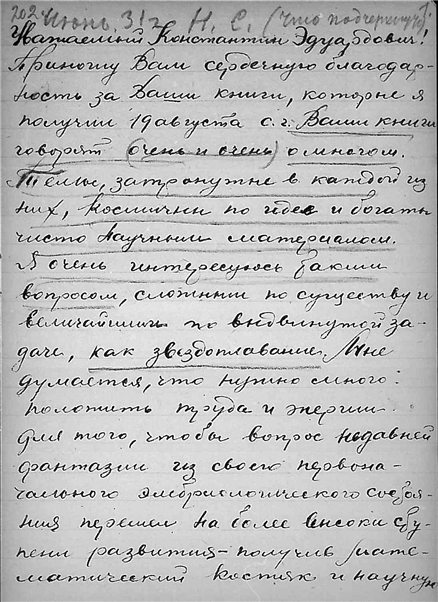 202 Июнь 31г. Н. С. (Что подчеркнуч)
Уважаемый Константин Эдуардович!
Приношу Вам сердечную благодар-
ность за Ваши книги, которые я
получил 19 августа с. г. Ваши книги
говорят (очень и очень) о многом.
Темы, затронутые в каждой из
них, космичны по идее и богаты
чисто научным материалом.
Я очень интересуюсь таким
вопросом, сложным по существу и
величайшим по выдвинутой за-
даче, как звездоплавание. Мне
думается, что нужно много
положить труда и энергии
для того, чтобы вопрос недавней
фантазии из своего первона-
чального эмбриологического состоя-
ния перешел на более высоки сту-
пени развития - получив мате-
матический костяк и научную